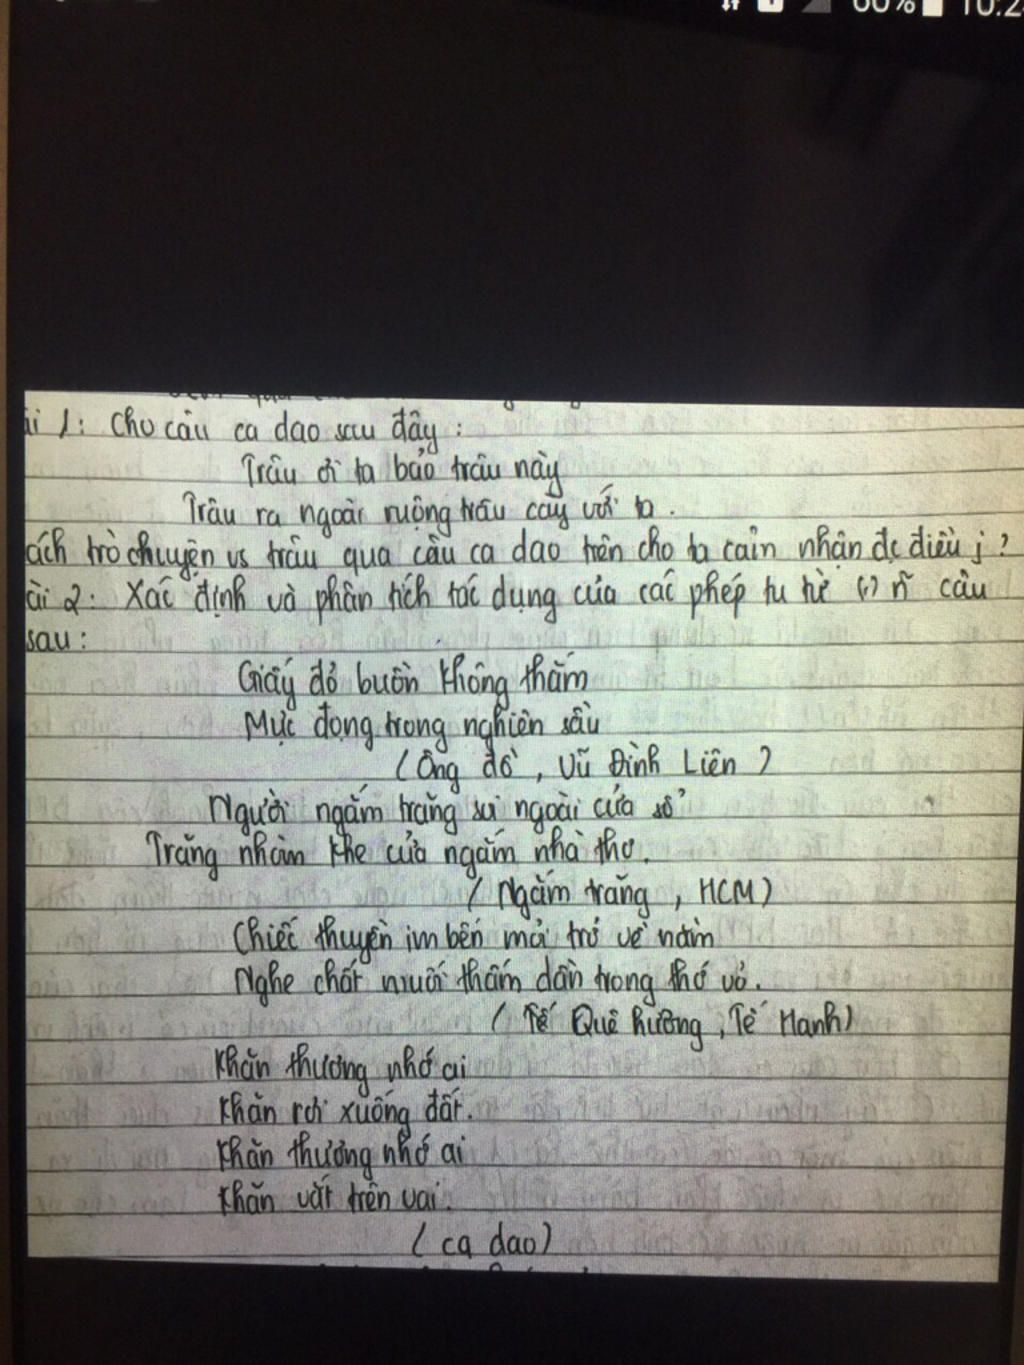 60% 10:2
ài 1: Cho câu ca dao sau đây :
Trâu ơi ta bảo trâu này
Trâu ra ngoài ruộng trâu cày với ta .
ách trò chuyện vs trâu qua câu ca dao trên cho ta cảm nhận đc điều j ?
ài 2: Xác định và phân tích tác dụng của các phép tu từ (.) ~ câu
sau :
Giấy đỏ buồn không thắm
Mực đọng trong nghiên sầu
( Ông đồ , Vũ Đình Liên )
Người ngắm trăng soi ngoài cửa sổ
Trăng nhòm khe cửa ngắm nhà thơ .
( Ngắm trăng , HCM )
Chiếc thuyền im bến mỏi trở về nằm
Nghe chất muối thấm dần trong thớ vỏ .
( Tế Quê hương , Tế Hanh )
Khăn thương nhớ ai
Khăn rơi xuống đất .
Khăn thương nhớ ai
Khăn vắt trên vai .
( ca dao )